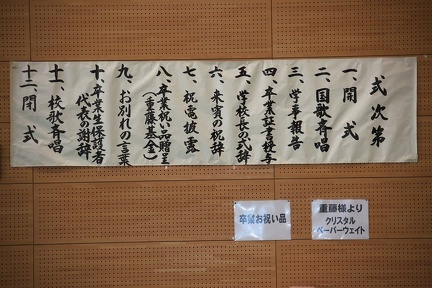 式次第
一、開式
二、国歌斉唱
三、学事報告
四、卒業証書授与
五、学校長の式辞
六、来賓の祝辞
七、祝電披露
八、卒業祝い品贈呈
（重藤基金）
九、お別れの言葉
十、卒業生保護者
代表の謝辞
十一、校歌斉唱
十二、閉式
卒業お祝い品
重藤様より
クリスタル
ペーパーウェイト